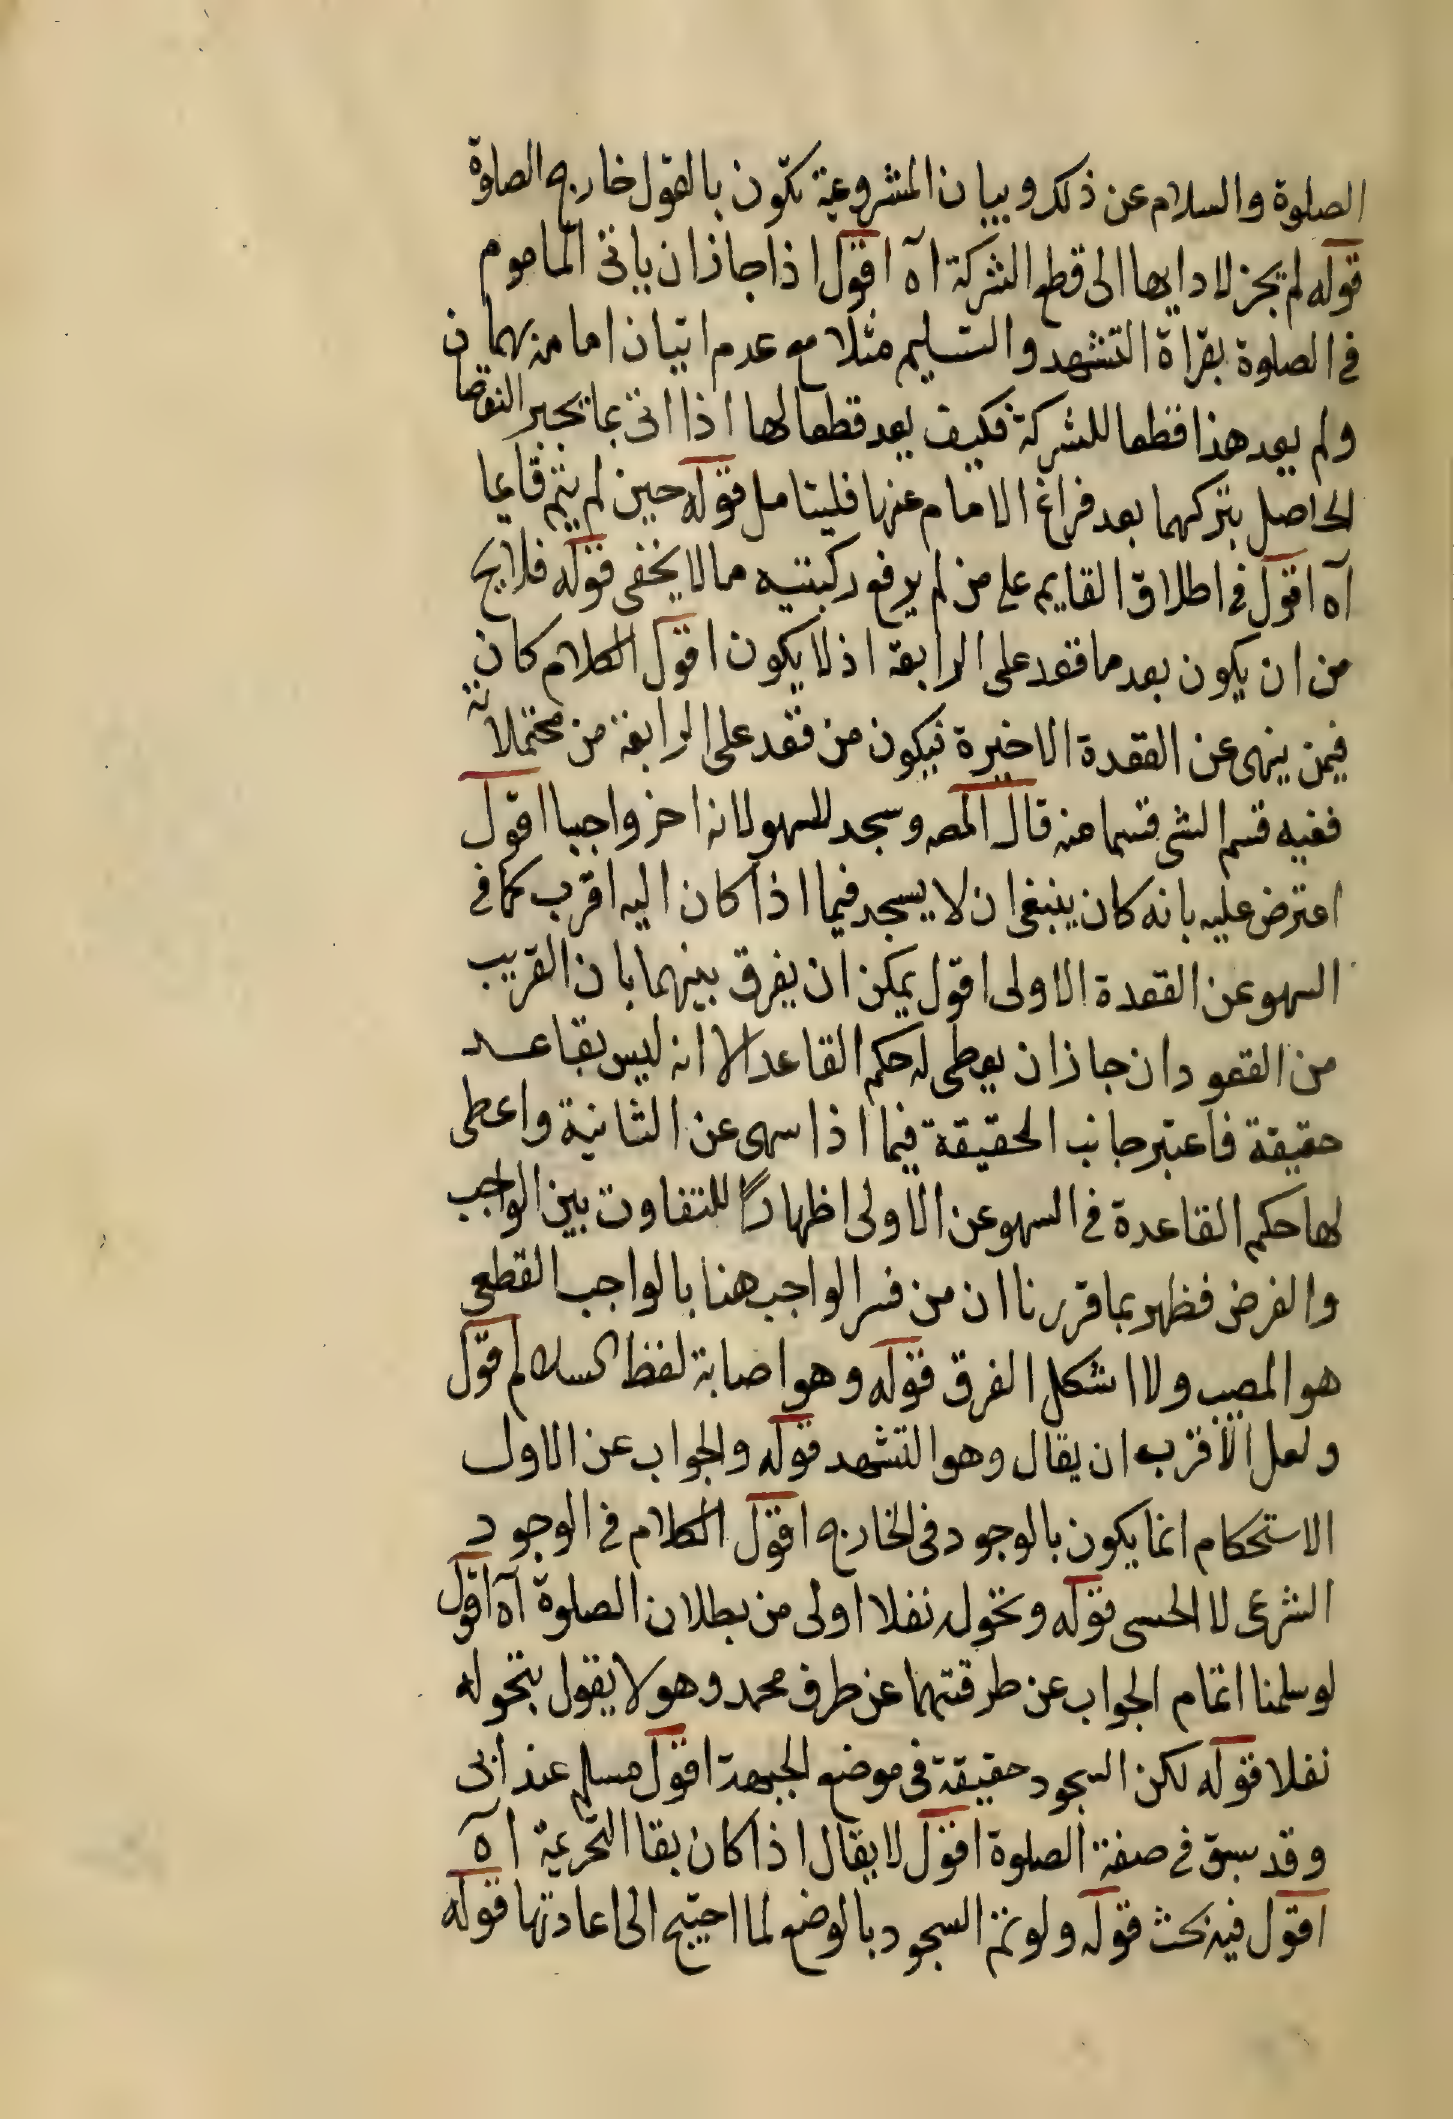 الصلوة والسلام عن ذلك وبيان المشروعية تكون بالقول خارج الصلوة
قوله لم يجز لادايها الى قطع الشركة اه اقول اذا جاز ان ياتى الماموم
فى الصلوة بقراة التشهد والتسليم مثلا مع عدم اتيان امامه بهما
ولم يعد هذا قطعا للشركة فكيف يعد قطعا لها اذا اتى بما يجبر النقصان
الحاصل بتركهما بعد فراغ الامام عنها فليتامل قوله حين لم يتم قايما
اه اقول فى اطلاق القايم على من لم يرفع ركبتيه مما لا يخفى قوله فلا يح
من ان يكون بعد ما قعد على الرابعة اذ لا يكون اقول الكلام كان
فيمن ينهى عن القعدة الاخيرة فيكون من قعد على الرابعة من محتملاته
ففيه قسم الشى قسيما منه قال المصـ وسجد للسهو لانه اخر واجبا اقول
اعترض عليه بانه كان ينبغى ان لا يسجد فيما اذا كان اليه اقرب كما فى
السهو عن القعدة الاولى اقول يمكن ان يفرق بينهما بان القريب
من القعود ان جاز ان يعطى له حكم القاعد الا انه ليس بقاعد
حقيقة فاعتبر جانب الحقيقة فيما اذا سهى عن الثانية واعطى
لها حكم القاعدة فى السهو عن الاولى اظهارًا للتفاوت بين الواجب
والفرض فظهر بما قررنا ان من فسر الواجب هنا بالواجب القطعى
هو المصب ولا اشكل الفرق قوله وهو اصابة لفظ السلام اقول
ولعل الاقرب ان يقال وهو التشهد قوله والجواب عن الاول
الاستحكام انما يكون بالوجود فى الخارج اقول الكلام فى الوجود
الشرعى لا الحسى قوله وتحوله نفلا اولى من بطلان الصلوة اه اقول
لو سلمنا اتمام الجواب عن طرقتهما عن طرف محمد وهو لا يقول بتحوله
نفلا قوله لكن السجود حقيقة فى موضع الجبهة اقول مسلم عند ابى
وقد سبق فى صفة الصلوة اقول لا يقال اذا كان بقا التحريمة اه
اقول فيه بحث قوله ولو تم السجود بالوضع لما احتيج الى اعادتها قوله